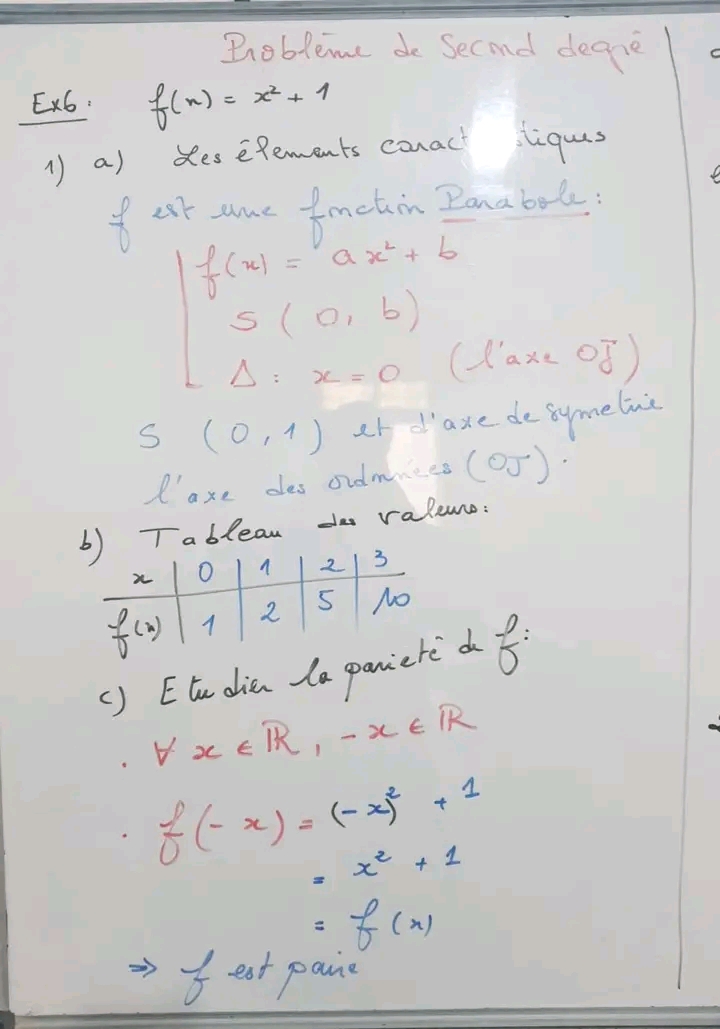 Problème de Second degré
Ex6: f(x) = x² + 1
1) a) Les élements caract stiques
f est une fonction Parabole:
f(x) = ax² + b
S (0, b)
Δ: x = 0 (l'axe OJ)
S (0, 1) et d'axe de symetrie
l'axe des ordonnées (OJ).
b) Tableau des valeurs:
x | 0 | 1 | 2 | 3
f(x) | 1 | 2 | 5 | 10
c) Etudier la parieté de f:
. ∀ x ∈ ℝ, -x ∈ ℝ
. f(-x) = (-x)² + 1
= x² + 1
= f(x)
⇒ f est paire